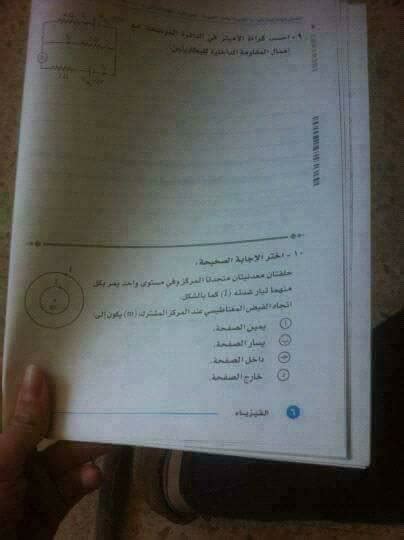 ٩ - احسب قراءة الأميتر في الدائرة الموضحة مع
إهمال المقاومة الداخلية للبطاريتين.
١٠ - اختر الإجابة الصحيحة :
حلقتان معدنيتان متحدتا المركز وفي مستوى واحد يمر بكل
منهما تيار شدته (I) كما بالشكل.
اتجاه الفيض المغناطيسي عند المركز المشترك (m) يكون إلى:
أ يمين الصفحة.
ب يسار الصفحة.
ج داخل الصفحة.
د خارج الصفحة.
٦ الفيزياء